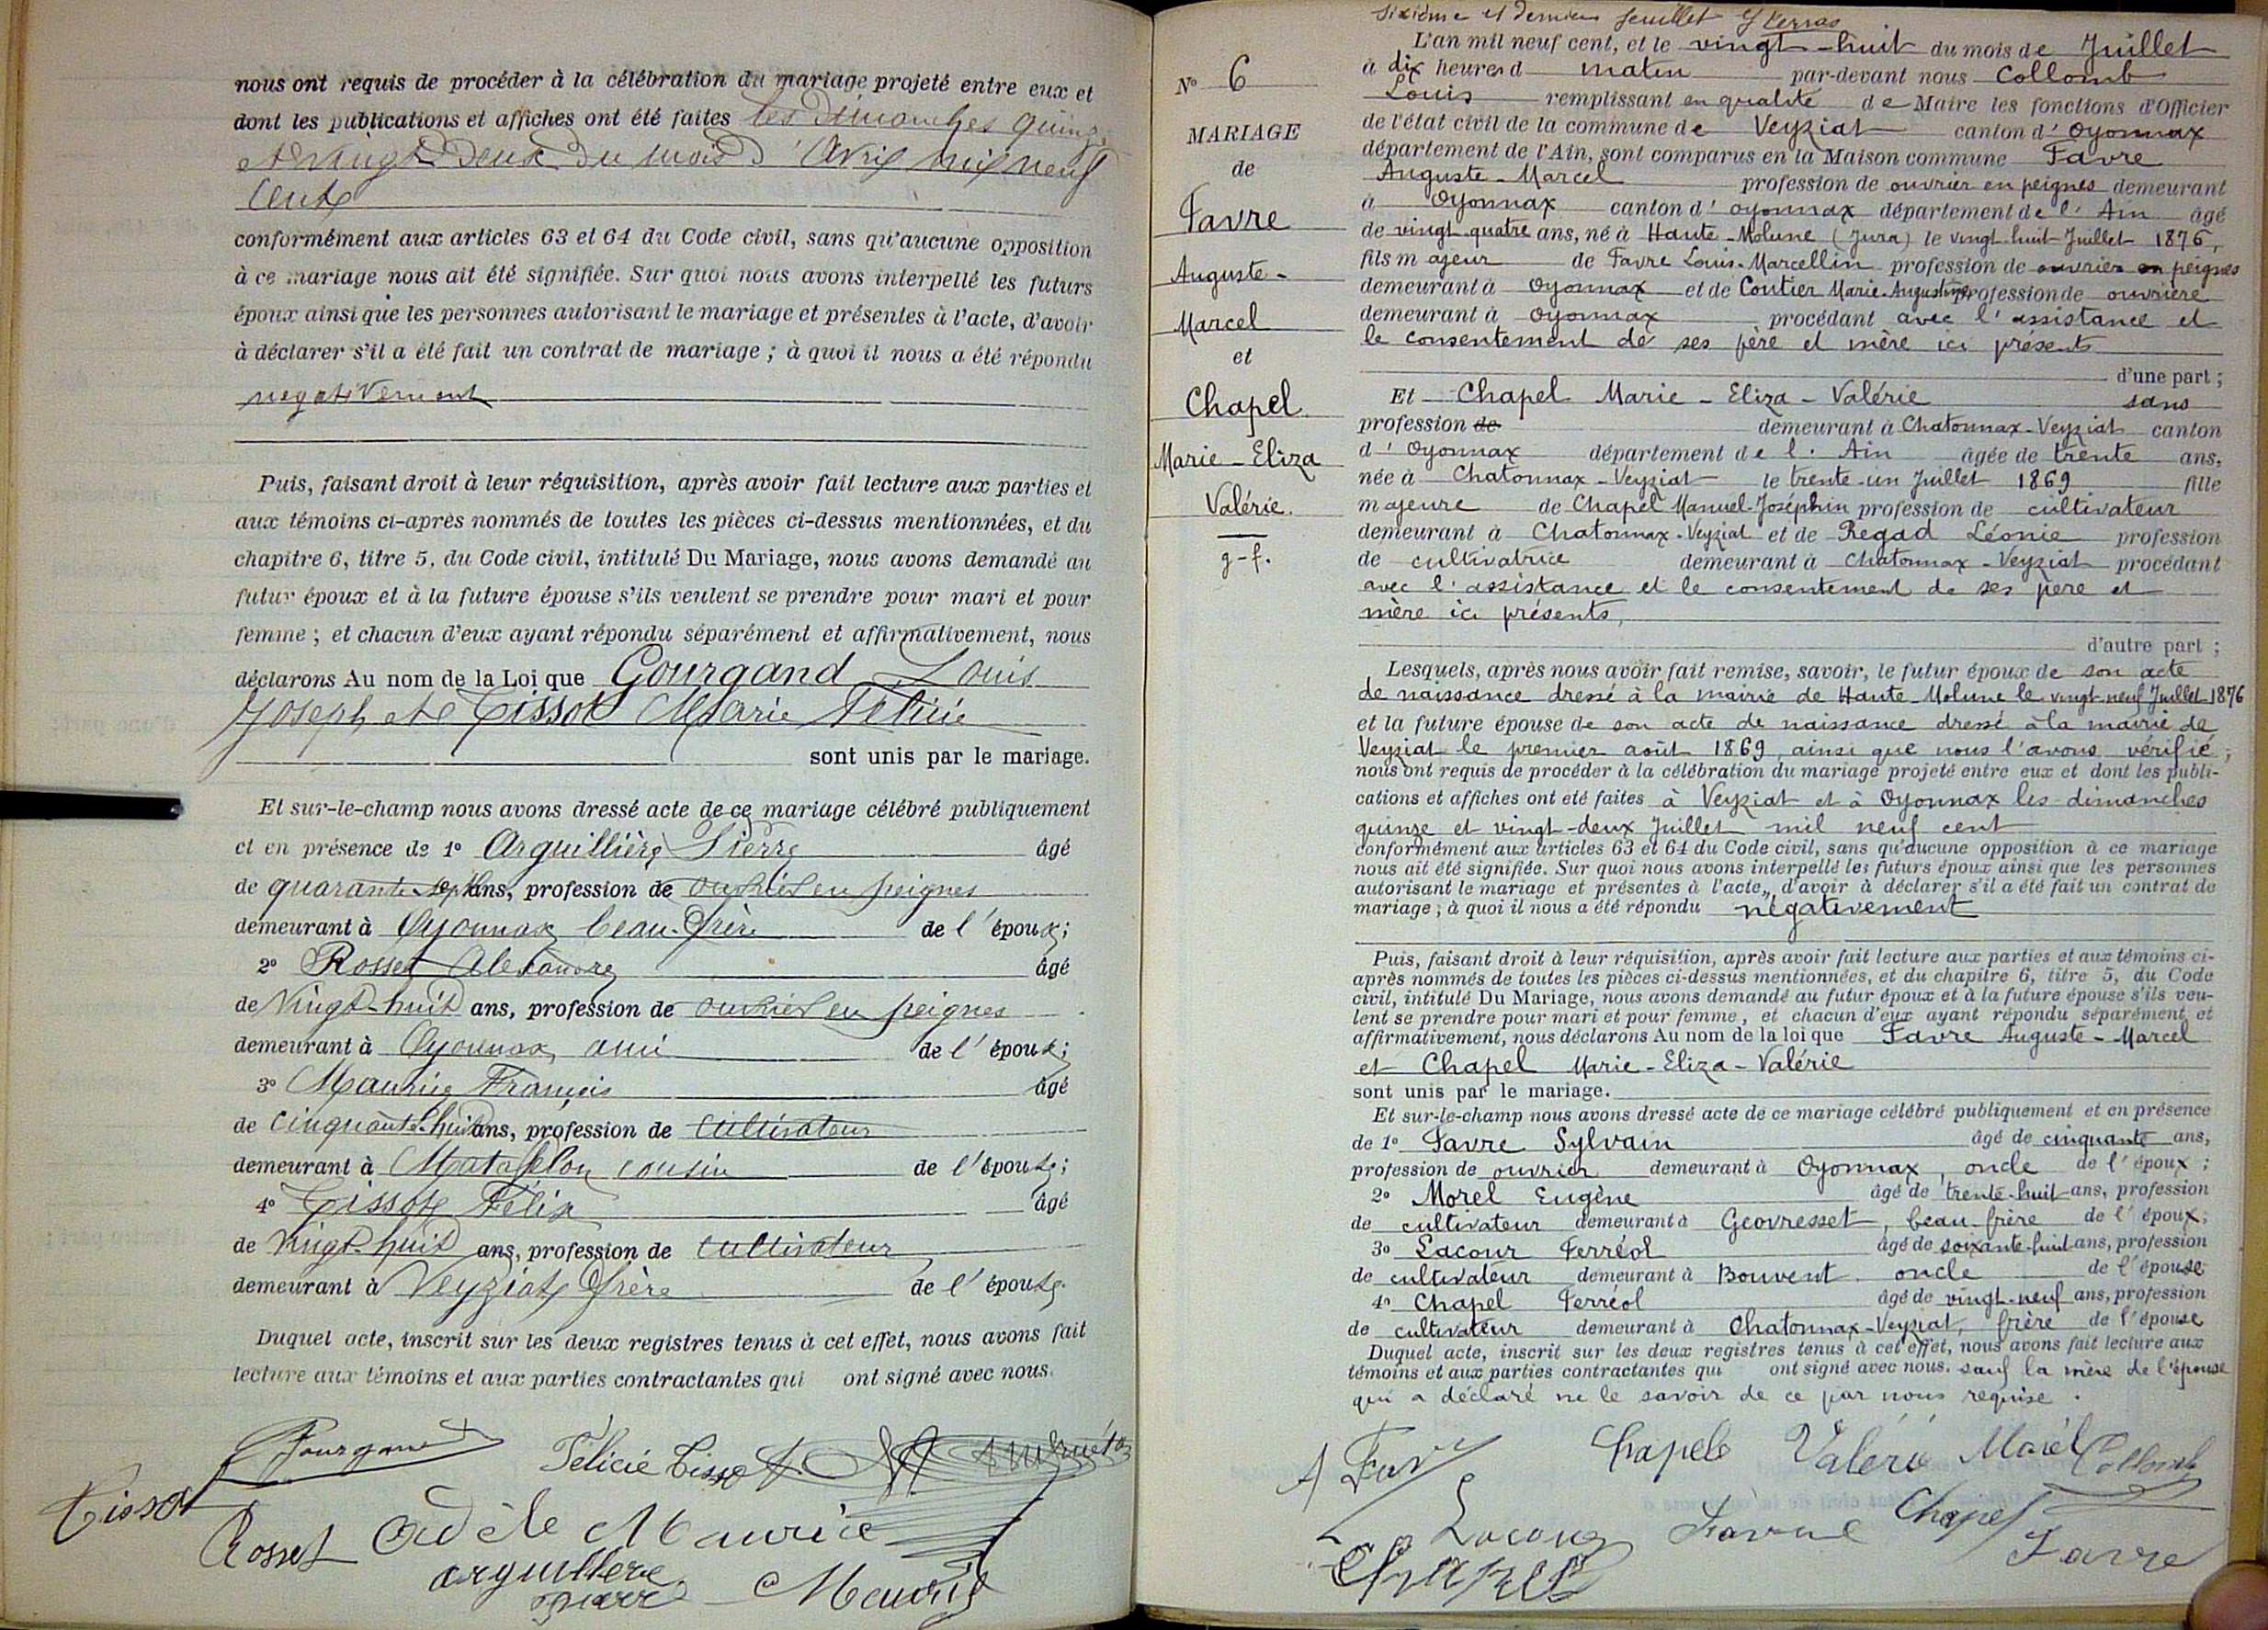 nous ont requis de procéder à la célébration du mariage projeté entre eux et
dont les publications et affiches ont été faites les Dimanches quinze
et vingt Deux Du mois d'Avril mil neuf
Cent
conformément aux articles 63 et 64 du Code civil, sans qu'aucune opposition
à ce mariage nous ait été signifiée. Sur quoi nous avons interpellé les futurs
époux ainsi que les personnes autorisant le mariage et présentes à l'acte, d'avoir
à déclarer s'il a été fait un contrat de mariage ; à quoi il nous a été répondu
negativement
Puis, faisant droit à leur réquisition, après avoir fait lecture aux parties et
aux témoins ci-après nommés de toutes les pièces ci-dessus mentionnées, et du
chapitre 6, titre 5, du Code civil, intitulé Du Mariage, nous avons demandé au
futur époux et à la future épouse s'ils veulent se prendre pour mari et pour
femme ; et chacun d'eux ayant répondu séparément et affirmativement, nous
déclarons Au nom de la Loi que Gourgand Louis
Joseph et Tissot Marie Félicie
sont unis par le mariage.
Et sur-le-champ nous avons dressé acte de ce mariage célébré publiquement
et en présence de 1º Arguillière Pierre âgé
de quarante-sept ans, profession de ouvrier en peignes
demeurant à Oyonnax beau-frère de l'époux;
2º Rosset Alexandre âgé
de vingt-huit ans, profession de ouvrier en peignes
demeurant à Oyonnax, ami de l'époux;
3º Maurice François âgé
de cinquante-huit ans, profession de cultivateur
demeurant à Matafelon cousin de l'épouse;
4º Tissot Félix âgé
de vingt-huit ans, profession de cultivateur
demeurant à Veyziat frère de l'épouse.
Duquel acte, inscrit sur les deux registres tenus à cet effet, nous avons fait
lecture aux témoins et aux parties contractantes qui ont signé avec nous.
Gourgand Félicie Tissot
Tissot
Rosset Adèle Maurice
arguillere
pierre Maurice
sixième et dernier feuillet
Nº 6
MARIAGE
de
Favre
Auguste-
Marcel
et
Chapel
Marie-Eliza
Valérie.
g-f.
L'an mil neuf cent, et le vingt-huit du mois de Juillet
à dix heures d matin par-devant nous Collomb
Louis remplissant en qualité de Maire les fonctions d'Officier
de l'état civil de la commune de Veyziat canton d'Oyonnax
département de l'Ain, sont comparus en la Maison commune Favre
Auguste-Marcel profession de ouvrier en peignes demeurant
à Oyonnax canton d'oyonnax département de l'Ain âgé
de vingt quatre ans, né à Haute-Molune (Jura) le vingt-huit Juillet 1876,
fils majeur de Favre Louis-Marcellin profession de ouvrier en peignes
demeurant à Oyonnax et de Coutier Marie-Augustine profession de ouvrière
demeurant à Oyonnax procédant avec l'assistance et
le consentement de ses père et mère ici présents
d'une part ;
Et Chapel Marie-Eliza-Valérie sans
profession de demeurant à Chatonnax-Veyziat canton
d'Oyonnax département de l'Ain âgée de trente ans,
née à Chatonnax-Veyziat le trente-un Juillet 1869 fille
majeure de Chapel Manuel-Joséphin profession de cultivateur
demeurant à Chatonnax-Veyziat et de Regad Léonie profession
de cultivatrice demeurant à Chatonnax-Veyziat procédant
avec l'assistance et le consentement de ses père et
mère ici présents,
d'autre part ;
Lesquels, après nous avoir fait remise, savoir, le futur époux de son acte
de naissance dressé à la mairie de Haute-Molune le vingt-neuf Juillet 1876
et la future épouse de son acte de naissance dressé à la mairie de
Veyziat le premier août 1869, ainsi que nous l'avons vérifié;
nous ont requis de procéder à la célébration du mariage projeté entre eux et dont les publi-
cations et affiches ont été faites à Veyziat et à Oyonnax les dimanches
quinze et vingt-deux Juillet mil neuf cent
conformément aux articles 63 et 64 du Code civil, sans qu'aucune opposition à ce mariage
nous ait été signifiée. Sur quoi nous avons interpellé les futurs époux ainsi que les personnes
autorisant le mariage et présentes à l'acte, d'avoir à déclarer s'il a été fait un contrat de
mariage ; à quoi il nous a été répondu négativement
Puis, faisant droit à leur réquisition, après avoir fait lecture aux parties et aux témoins ci-
après nommés de toutes les pièces ci-dessus mentionnées, et du chapitre 6, titre 5, du Code
civil, intitulé Du Mariage, nous avons demandé au futur époux et à la future épouse s'ils veu-
lent se prendre pour mari et pour femme, et chacun d'eux ayant répondu séparément et
affirmativement, nous déclarons Au nom de la loi que Favre Auguste-Marcel
et Chapel Marie-Eliza-Valérie
sont unis par le mariage.
Et sur-le-champ nous avons dressé acte de ce mariage célébré publiquement et en présence
de 1º Favre Sylvain âgé de cinquante ans,
profession de ouvrier demeurant à Oyonnax, oncle de l'époux ;
2º Morel Eugène âgé de trente-huit ans, profession
de cultivateur demeurant à Geovresset, beau-frère de l'époux;
3º Lacour Ferréol âgé de soixante-huit ans, profession
de cultivateur demeurant à Bouvent oncle de l'épouse
4º Chapel Ferréol âgé de vingt-neuf ans, profession
de cultivateur demeurant à Chatonnax-Veyziat, frère de l'épouse
Duquel acte, inscrit sur les deux registres tenus à cet effet, nous avons fait lecture aux
témoins et aux parties contractantes qui ont signé avec nous. sauf la mère de l'épouse
qui a déclaré ne le savoir de ce par nous requise.
Chapel Valérie Morel Collomb
Lacour Favre Chapel
Chapel Favre